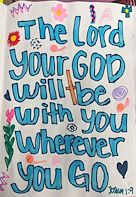 The Lord
your GOD
will be
with you
wherever
you GO
Joshua 1:9